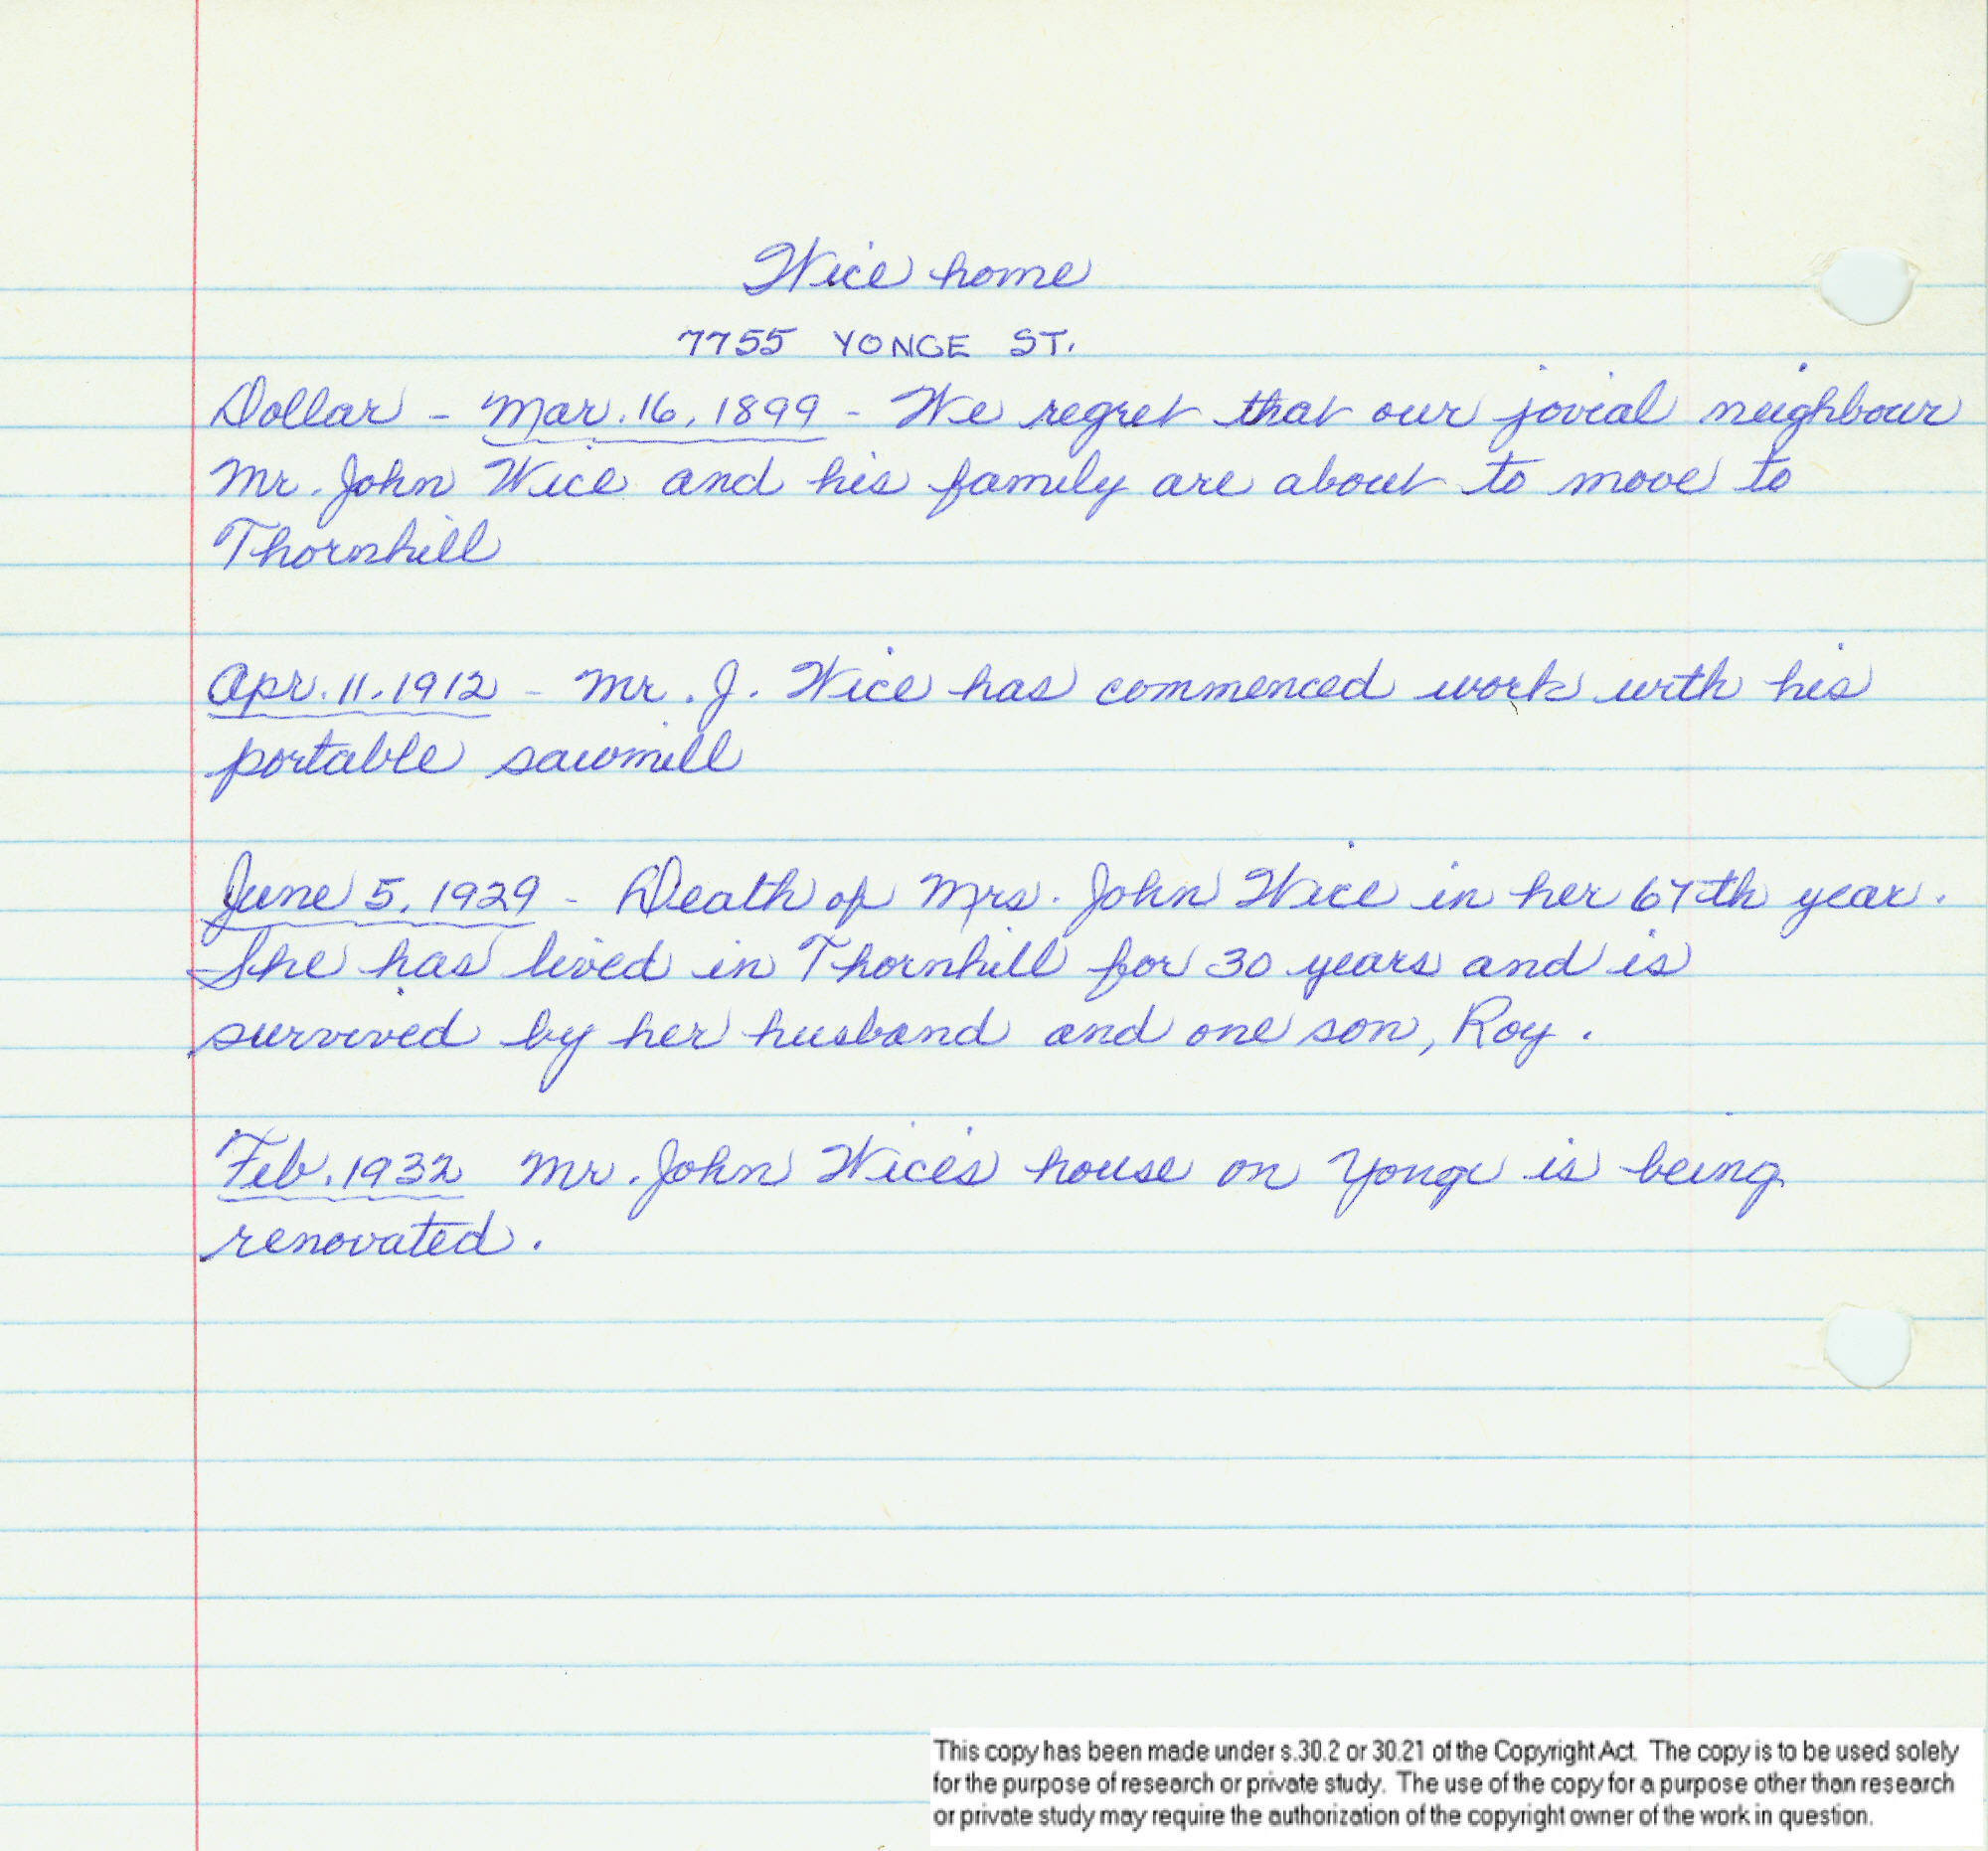 Wice home
7755 YONGE ST.
Dollar - Mar. 16, 1899 - We regret that our jovial neighbour
Mr. John Wice and his family are about to move to
Thornhill
Apr. 11. 1912 - Mr. J. Wice has commenced work with his
portable sawmill
June 5, 1929 - Death of Mrs. John Wice in her 67th year.
She has lived in Thornhill for 30 years and is
survived by her husband and one son, Roy.
Feb. 1932 Mr. John Wice's house on Yonge is being
renovated.
This copy has been made under s.30.2 or 30.21 of the Copyright Act. The copy is to be used solely
for the purpose of research or private study. The use of the copy for a purpose other than research
or private study may require the authorization of the copyright owner of the work in question.